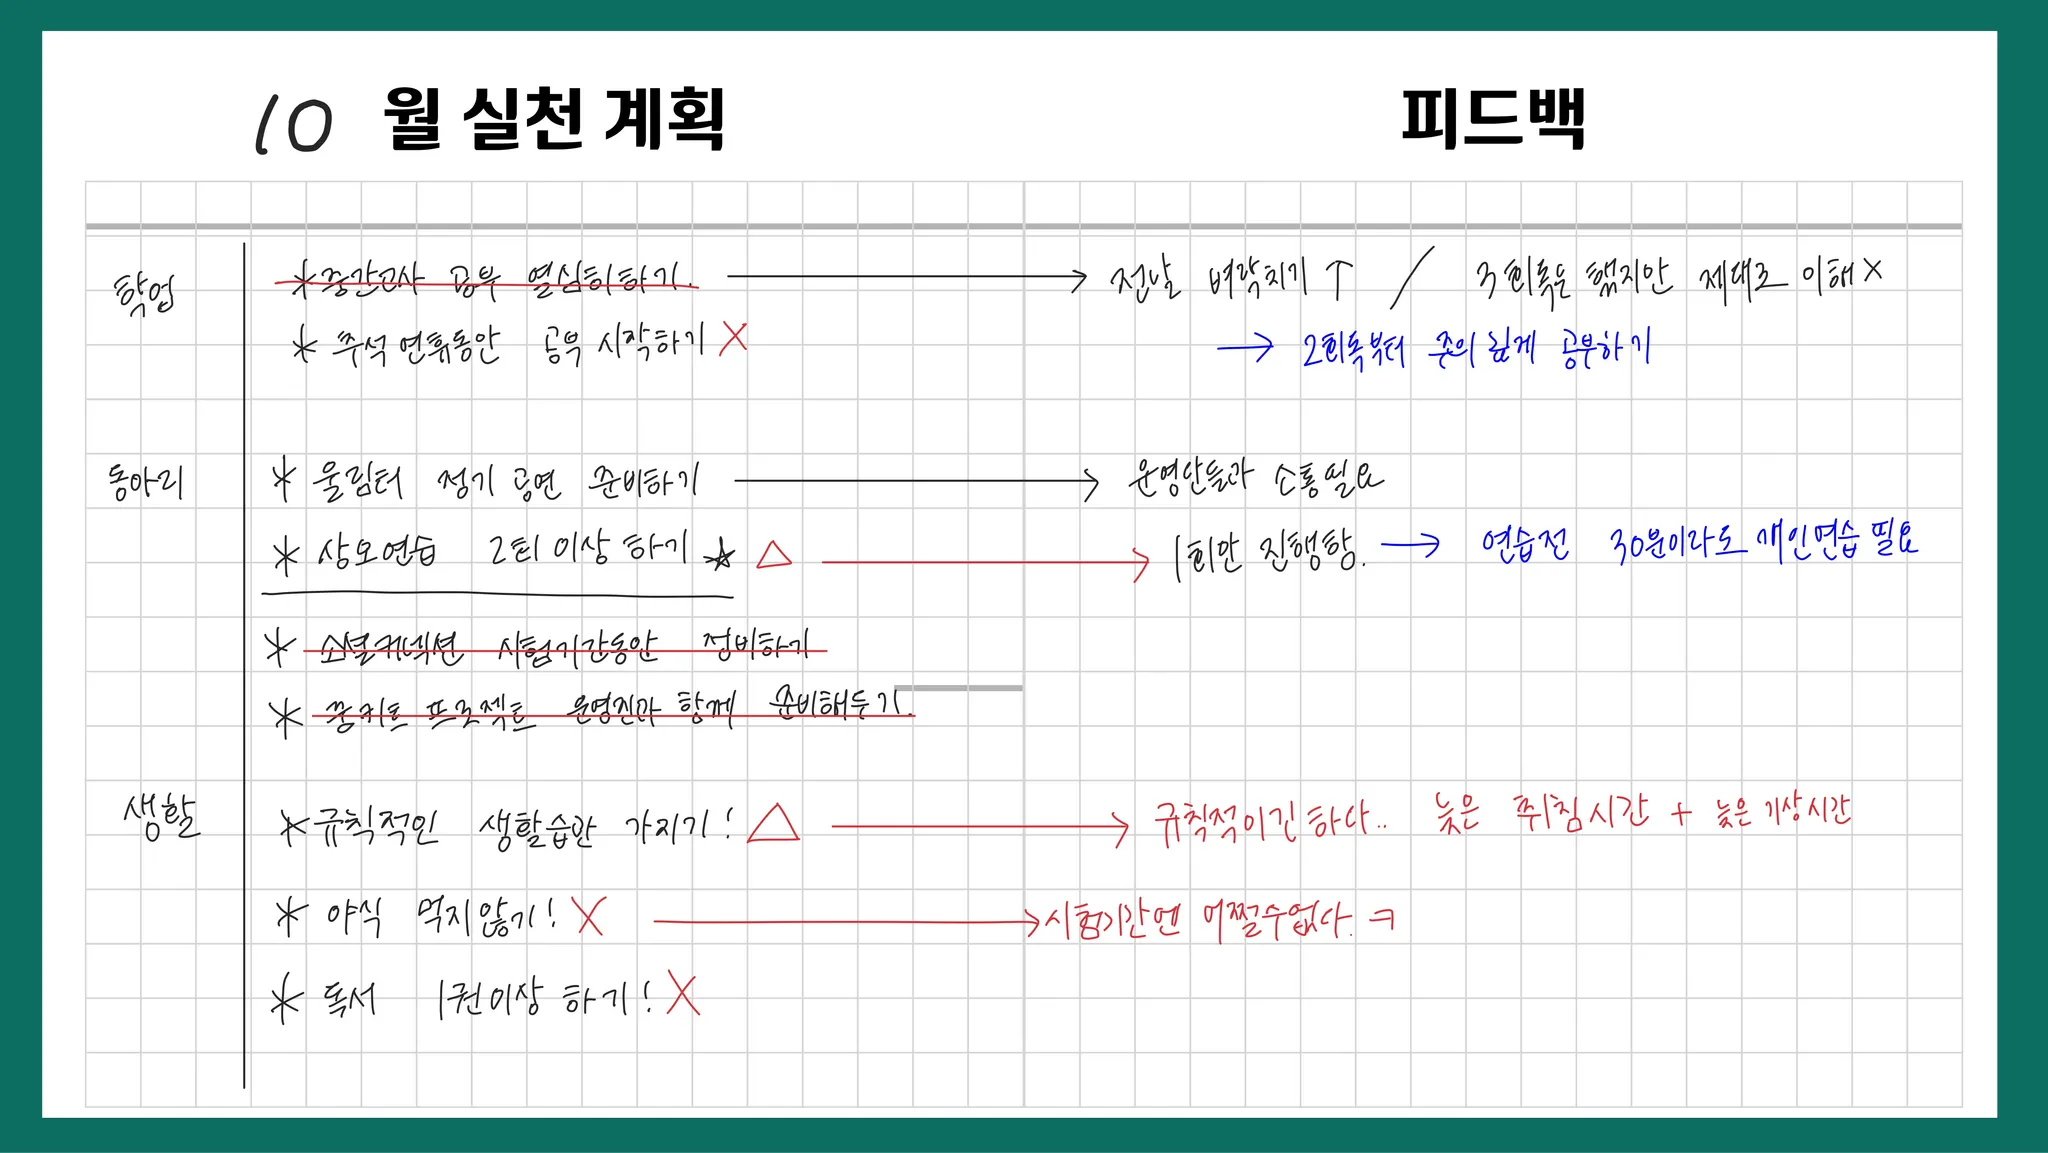 10 월 실천 계획
피드백
학업
* 중간고사 공부 열심히하기.
→ 전날 벼락치기 ↑ / 3회독은 했지만 제대로 이해 X
* 추석 연휴동안 공부 시작하기 X
→ 2회독부터 주의 깊게 공부하기
동아리
* 울림터 정기 공연 준비하기
→ 운영단들과 소통필요
* 상모연습 2회 이상 하기 ☆ △
→ 1회만 진행함. → 연습전 30분이라도 개인연습 필요
* 소셜커넥션 시험기간동안 정비하기
* 꿈키트 프로젝트 운영진과 함께 준비해두기.
생활
* 규칙적인 생활습관 가지기! △
→ 규칙적이긴 하다.. 늦은 취침시간 + 늦은 기상시간
* 야식 먹지않기! X
→ 시험기간엔 어쩔수없다. ㅋ
* 독서 1권이상 하기! X